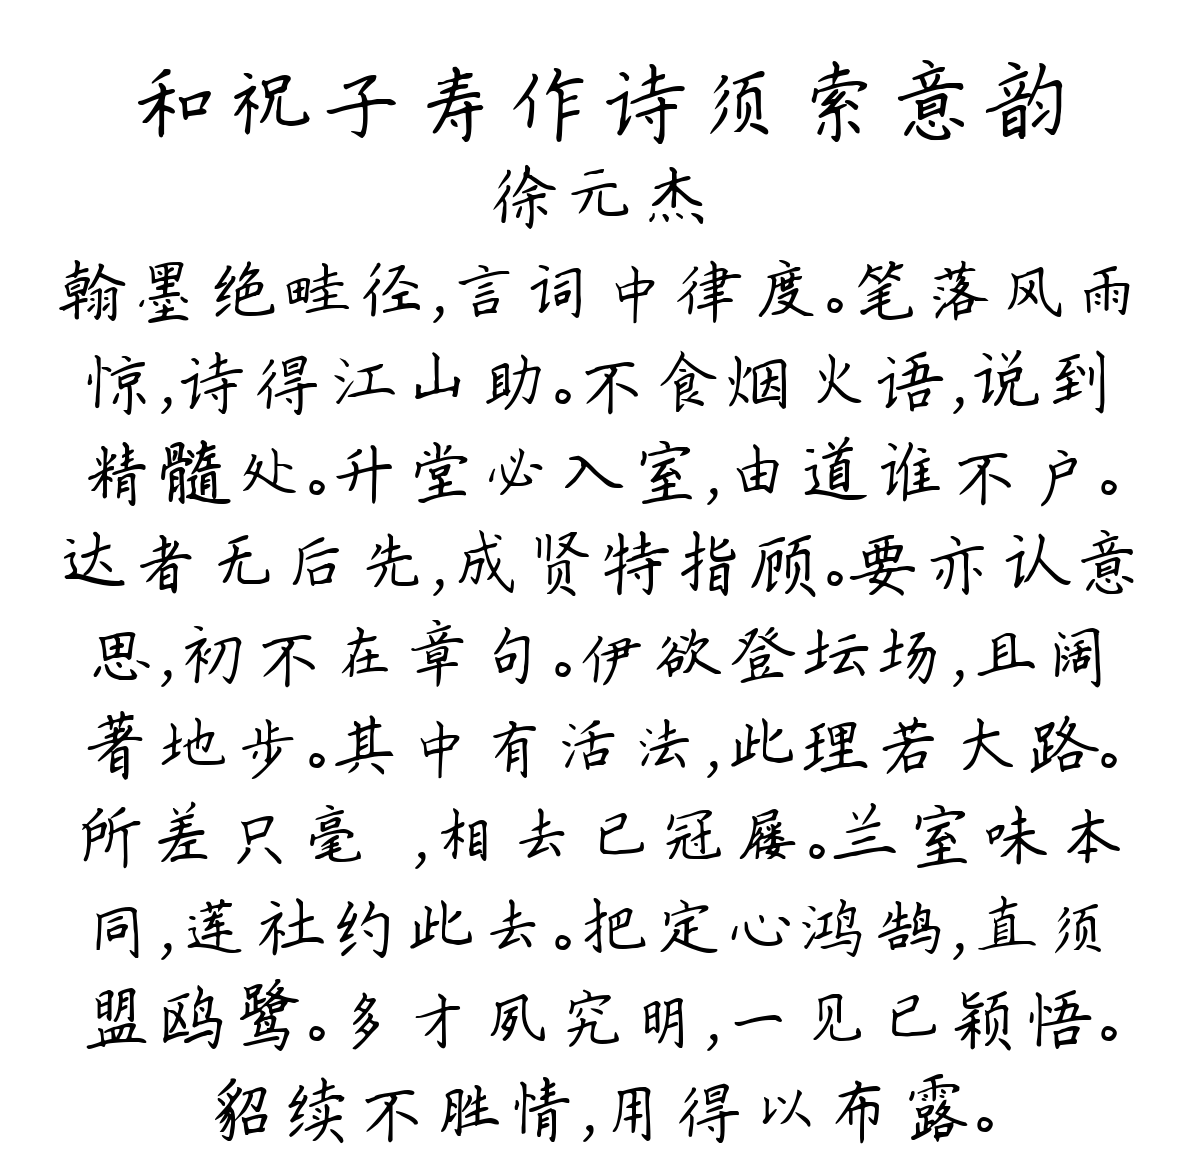 和祝子寿作诗须索意韵
徐元杰
翰墨绝畦径,言词中律度。笔落风雨
惊,诗得江山助。不食烟火语,说到
精髓处。升堂必入室,由道谁不户。
达者无后先,成贤特指顾。要亦认意
思,初不在章句。伊欲登坛场,且阔
著地步。其中有活法,此理若大路。
所差只毫 ,相去已冠屦。兰室味本
同,莲社约此去。把定心鸿鹄,直须
盟鸥鹭。多才夙究明,一见已颖悟。
貂续不胜情,用得以布露。